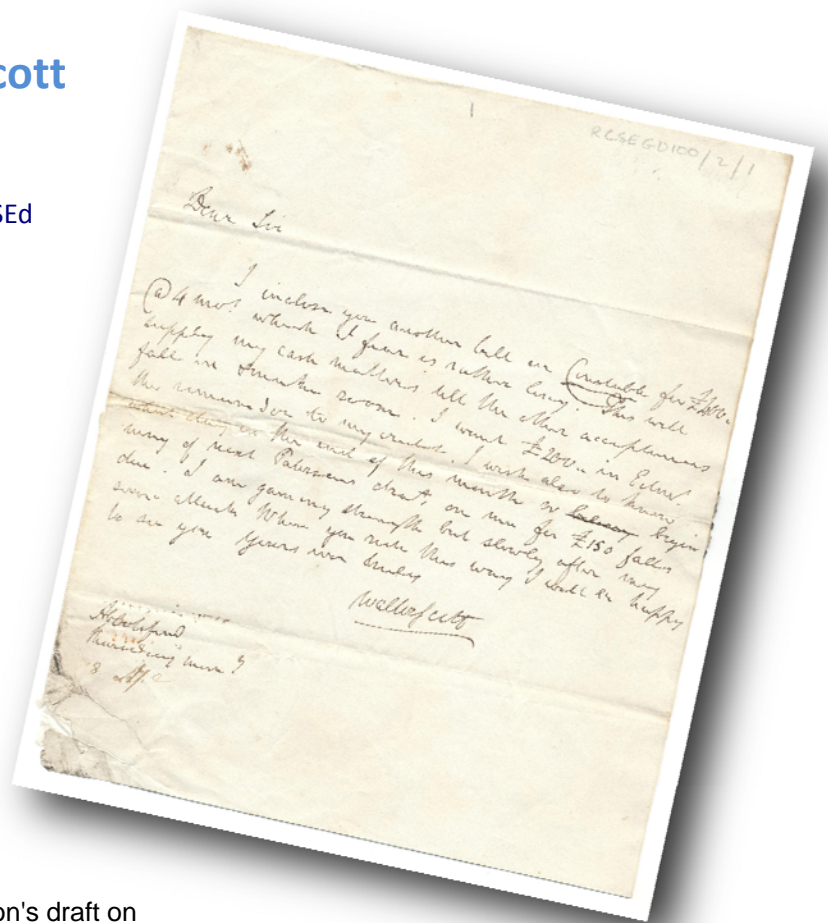 cott
SEd
1
RCSEGD100/2/1
Dear Sir
I inclose you another bill on Constable for £400..
@ 4 mos which I fear is rather long. This will
supply my cash matters till the other acceptances
fall in & make room. I want £200.. in Edinr.
the remainder to my credit. I wish also to know
what day in the end of this month or begin
ning of next Patersons draft on me for £150 falls
due. I am gaining strength but slowly after my
severe attack When you ride this way I will be happy
to see you Yours very truly
Walter Scott
Abbotsford
on's draft on